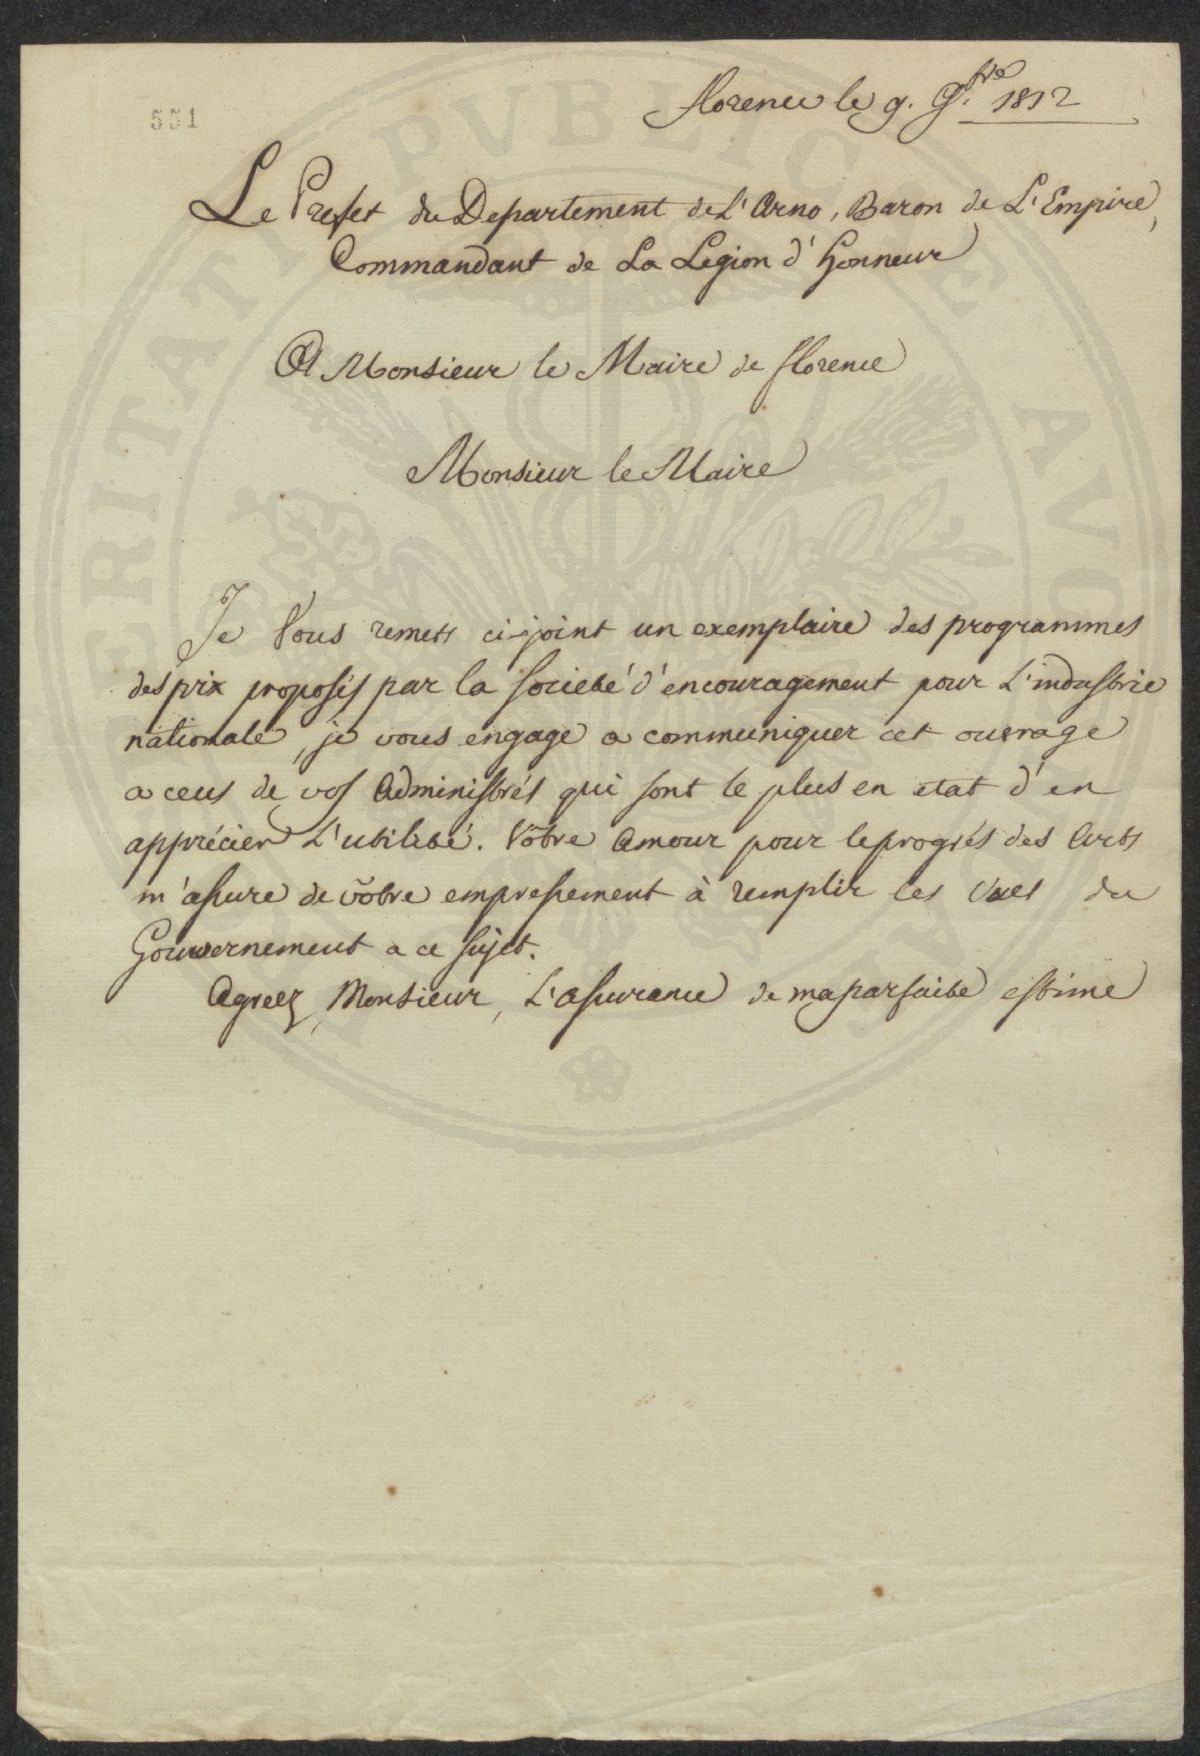 551
florence le 9. 9.bre 1812
Le Prefet du Departement de L'Arno, Baron de L'Empire,
Commandant de La Legion d'honneur
A Monsieur le Maire de florence
Monsieur le Maire
Je Vous remets ci-joint un exemplaire des programmes
des prix proposés par la societé d'encouragement pour L'industrie
nationale, je vous engage a communiquer cet ouvrage
a ceus de vos Administrés qui sont le plus en etat d'en
apprécier L'utilité. Vôtre Amour pour le progrés des Arts
m'assure de vôtre empressement à remplir les Vues du
Gouvernement a ce sujet.
Agreez, Monsieur, L'assurance de ma parfaite estime